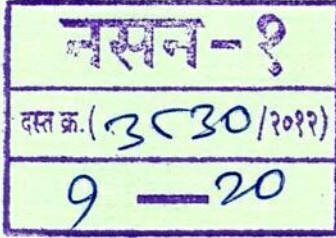 नसन-१
दस्त क्र.(३८३०/२०१२)
१ — २०